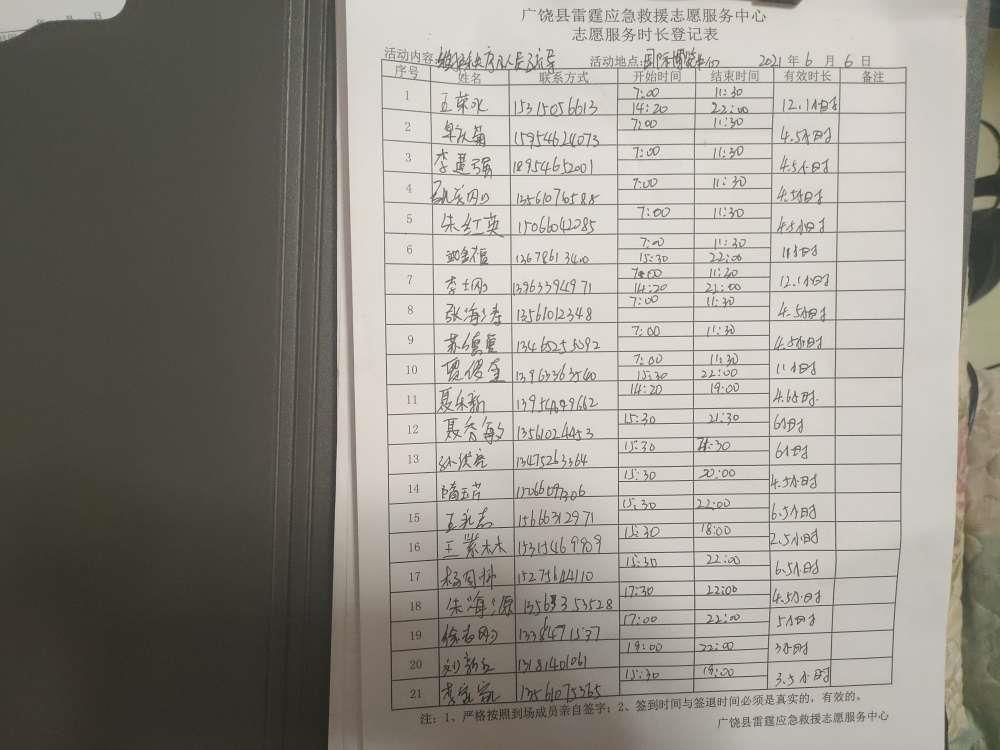 广饶县雷霆应急救援志愿服务中心
志愿服务时长登记表
活动内容: 活动地点:国际博览中心 2021 年 6 月 6 日
序号 姓名 联系方式 开始时间 结束时间 有效时长 备注
1 王荣水 15315056613 7:00 11:30 12.1小时
14:20 22:00
2 15954624073 7:00 11:30 4.5小时
3 李建强 18954652001 7:00 11:30 4.5小时
4 13561076588 7:00 11:30 4.5小时
5 朱红英 15066042285 7:00 11:30 4.5小时
6 7:00 11:30 11小时
15:30 22:00
7 13963394971 7:00 11:30 12.1小时
14:20 21:00
8 张海涛 13561012348 7:00 11:30 4.5小时
9 苏德重 13465255092 7:00 11:30 4.5小时
10 13963363540 7:00 11:30 11小时
15:30 22:00
11 14:20 19:00 4.6小时
12 聂秀敏 13561024453 15:30 21:30 6小时
13 13475263364 15:30 6小时
14 15:30 20:00 4.5小时
15 王永志 15666312971 15:30 22:00 6.5小时
16 王紫林 15315469909 15:30 18:00 2.5小时
17 15275644110 15:30 22:00 6.5小时
18 朱海源 13563353528 17:30 22:00 4.5小时
19 徐志刚 17:00 22:00 5小时
20 19:00 22:00 3小时
21 13561075365 15:30 19:00 3.5小时
注:1、严格按照到场成员亲自签字;2、签到时间与签退时间必须是真实的,有效的。
广饶县雷霆应急救援志愿服务中心